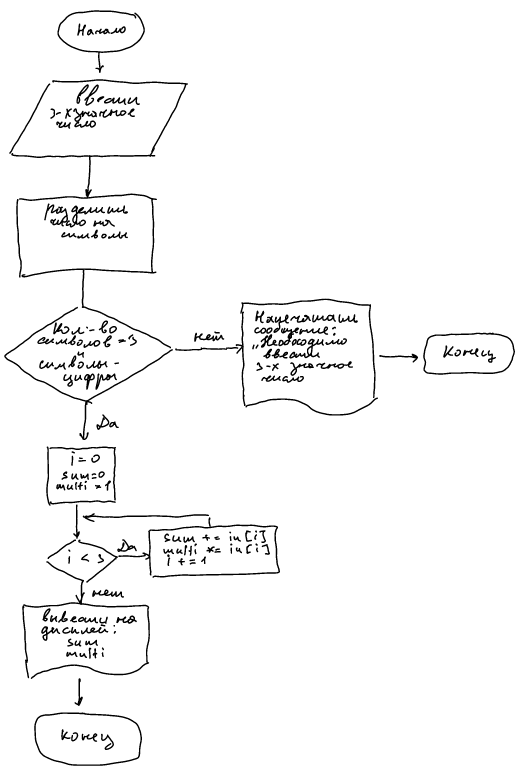 Начало
Ввести
3-хзначное
число
разделить
число на
символы
Кол-во
символов = 3
и
символы -
цифры
нет
Напечатать
сообщение:
„Необходимо
ввести
3-х значное
число
Конец
Да
i = 0
sum=0
multi = 1
i < 3
Да
sum += in[i]
multi *= in[i]
i += 1
нет
вывести на
дисплей:
sum
multi
конец